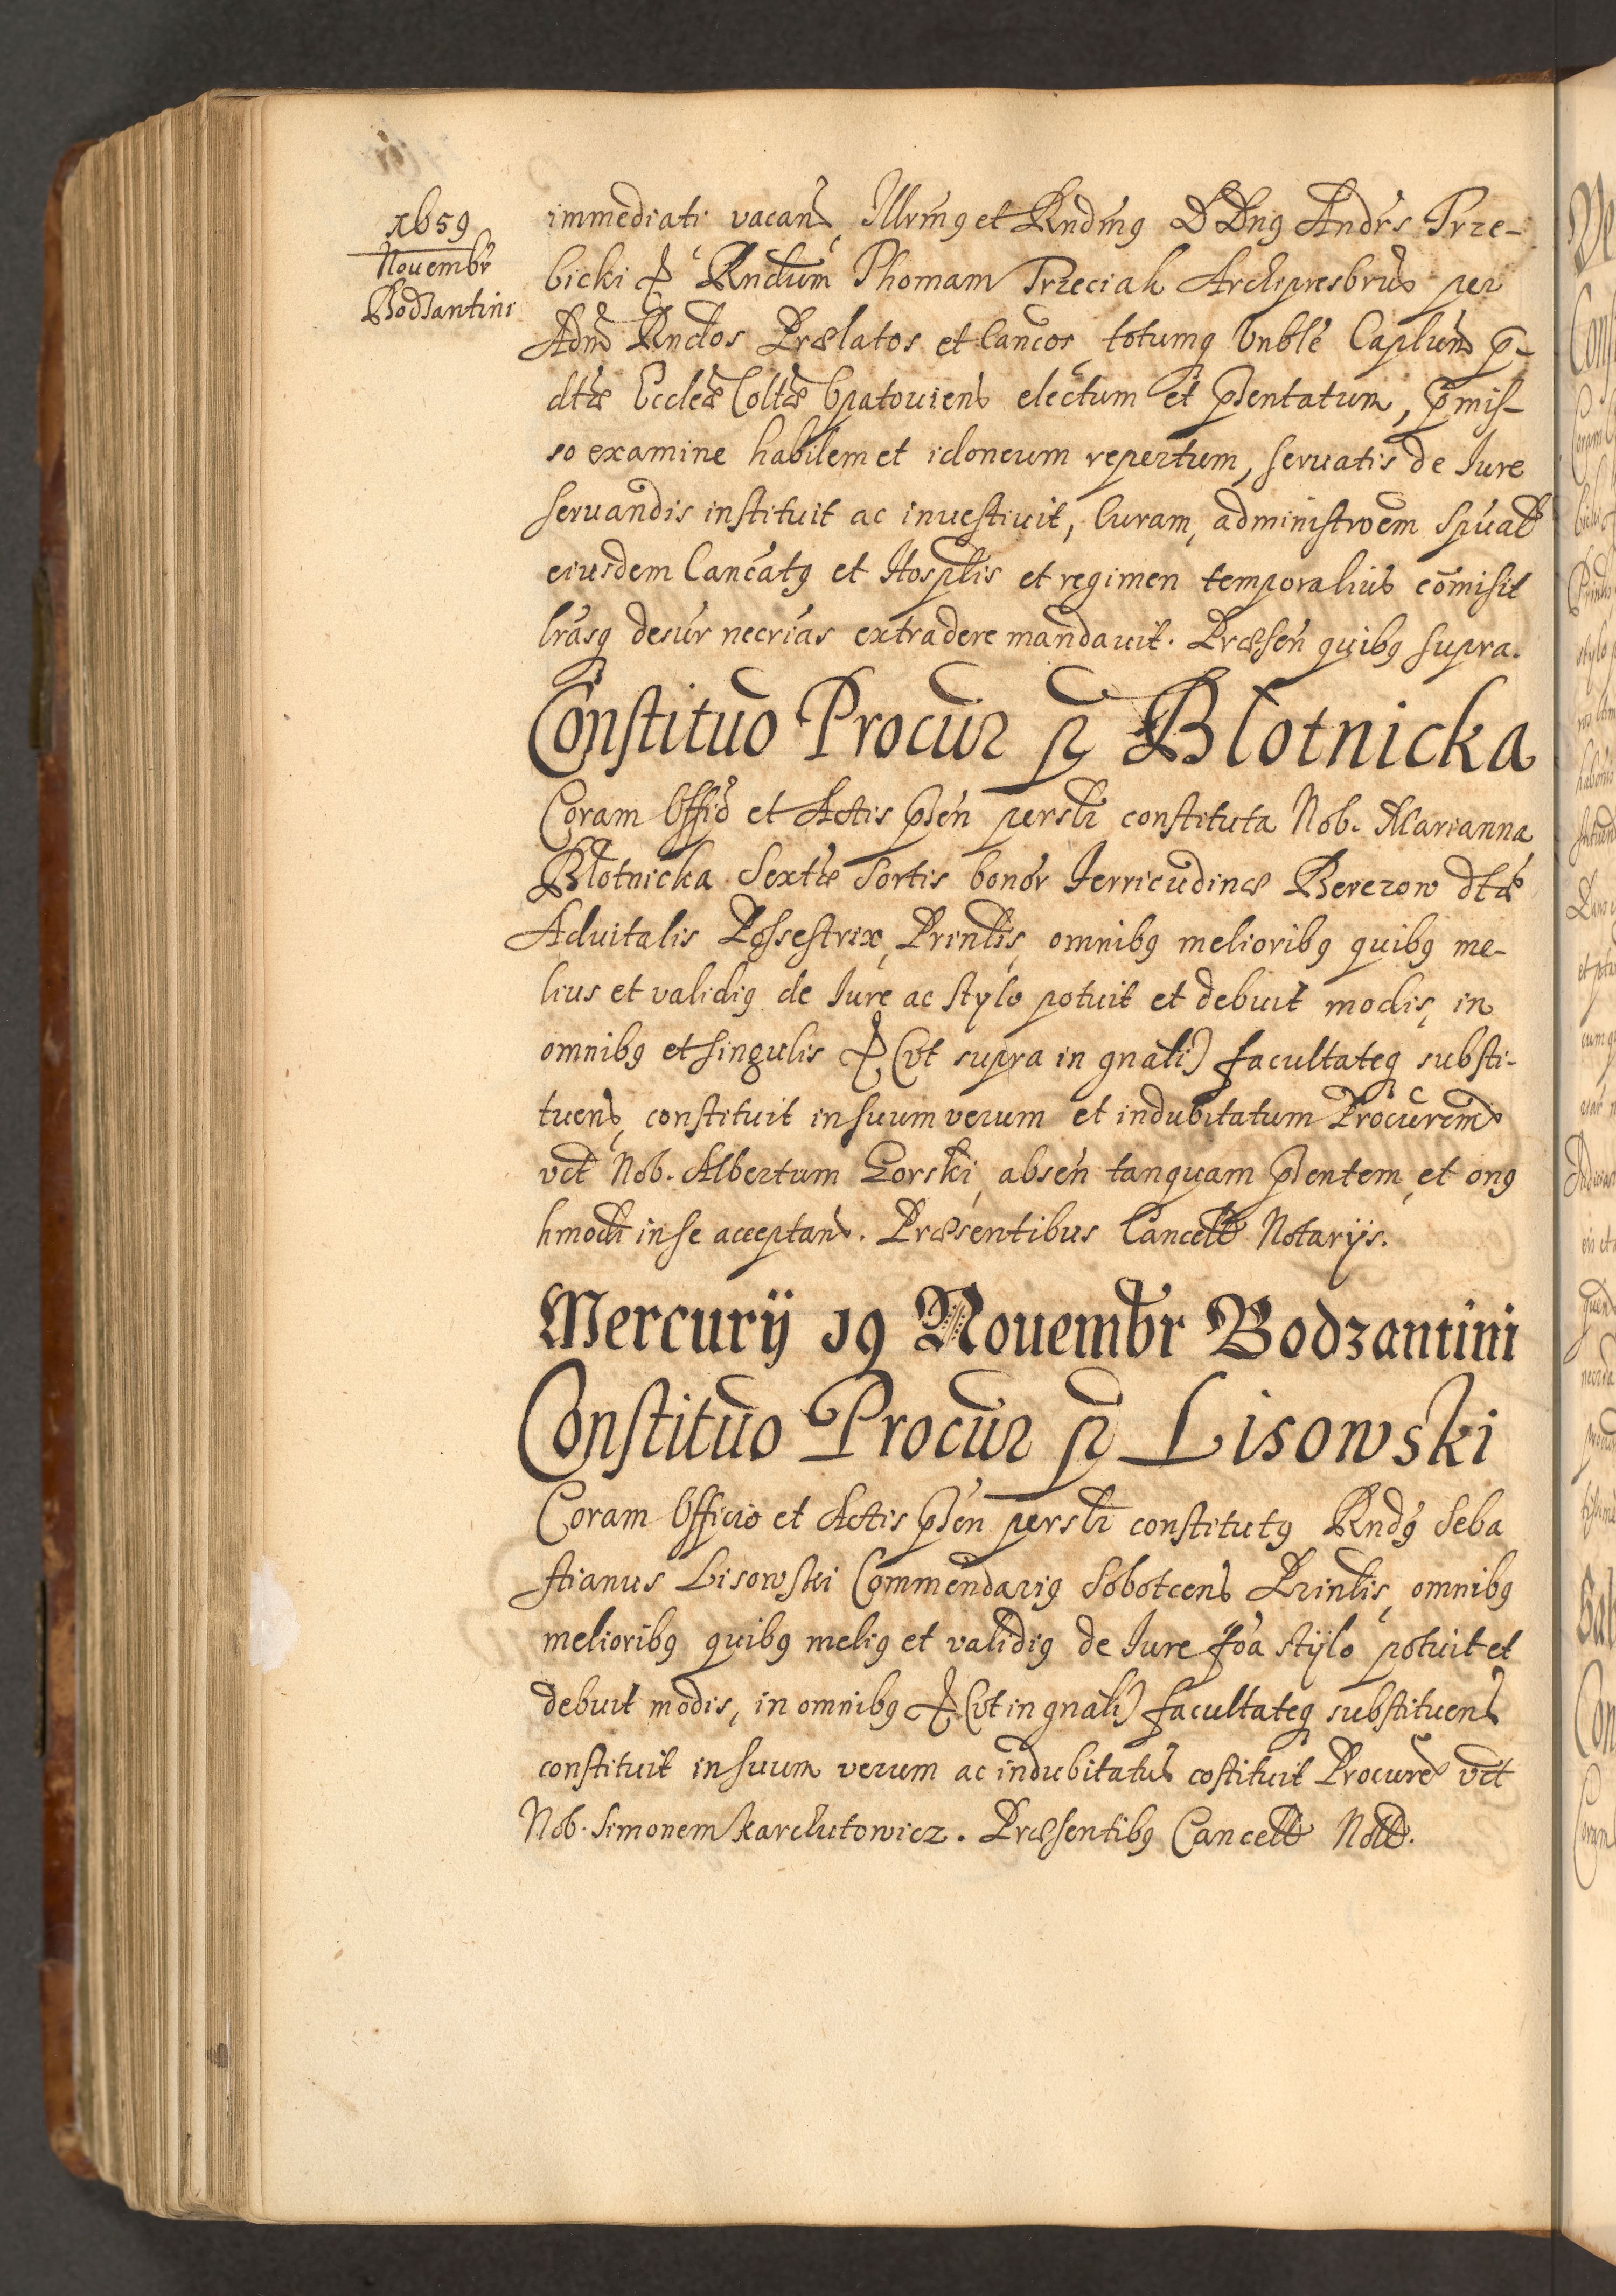 1659
Nouembr
Bodzantini
immediati vacan, Illrmq et Rndmq D Dnq Andrs Trze-
bicki & Rndum Thomam Trzeciak Archipresbrum per
Adm Rndos Prælatos et Cancos, totumq Vnble Caplum p-
dtæ Eccleæ Coltæ Opatouien electum et pñtentatum, pmis-
so examine habilem et idoneum repertum, seruatis de Iure
seruandis instituit ac inuestiuit, Curam, administroem spual
eiusdem Cancatq et Hosplis et regimen temporalium comisit
lrasq desur necrias extradere mandauit. Præsen quibq supra.
Constituo Procur p Blotnicka
Coram Offio et Actis psen persli constituta Nob. Marianna
Blotnicka Sextæ Sortis bonor Jerricudinæ Berezow dtæ
Aduitalis Possestrix, Prinlis, omnibq melioribq quibq me-
lius et validiq de Iure ac stylo potuit et debuit modis, in
omnibq et singulis & (vt supra in gnali) facultateq substi-
tuen, constituit in suum verum et indubitatum Procurem
vct Nob. Albertum Gorski, absen tanquam psentem, et onq
hmodi in se acceptan. Præsentibus Cancell Notarijs.
Mercurij 19 Nouembr Bodzantini
Constituo Procur p Lisowski
Coram Officio et Actis psen persli constitutq Rndq Seba
stianus Lisowski Commendariq Sobotcens Prinlis, omnibq
melioribq quibq meliq et validiq de Iure foa stijlo potuit et
debuit modis, in omnibq & (vt in gnali) facultateq substituens
constituit in suum verum ac indubitatum costituit Procure vct
Nob. Simonem Karchutowicz. Præsentibq Cancell Nott.